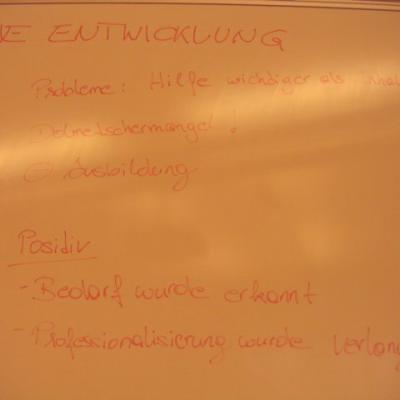 E ENTWICKLUNG
Probleme: Hilfe wichdiger als Inhal
Dolmetschermangel!
⊖ Ausbildung
Positiv
- Bedarf wurde erkannt
- Professionalisierung wurde verlang